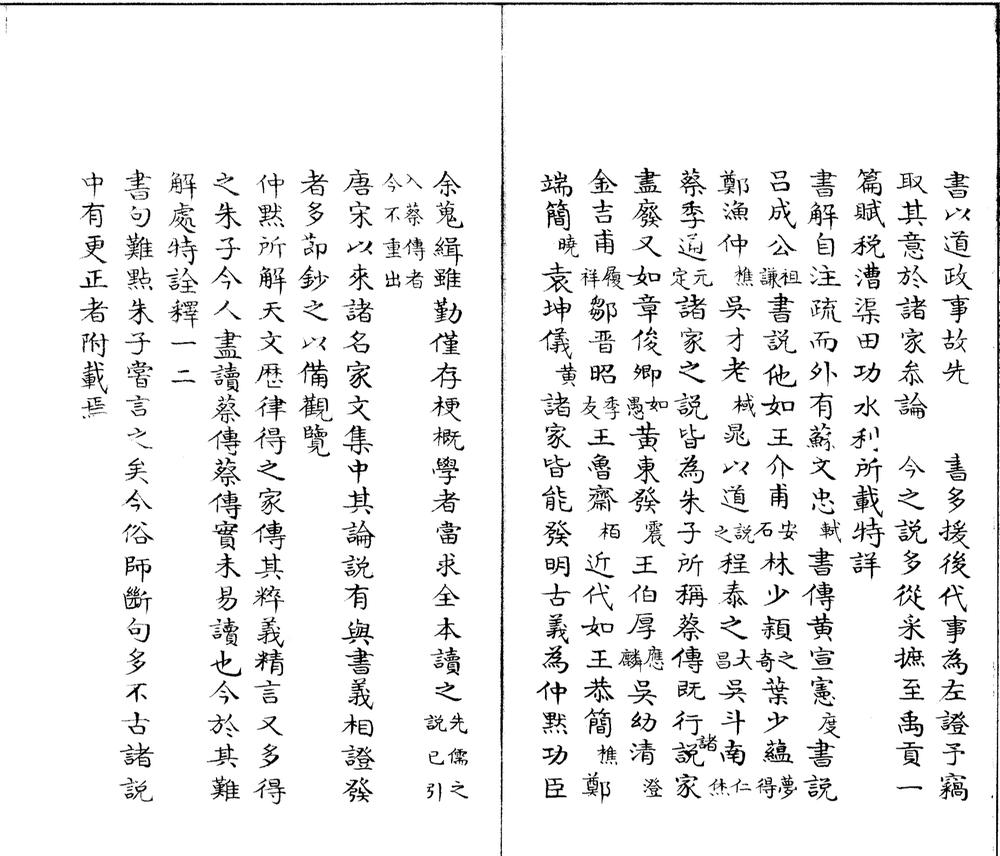 書以道政事故先　　書多援後代事為左證予竊
取其意於諸家叅論　今之說多從采摭至禹貢一
篇賦稅漕渠田功水利所載特詳
書解自注疏而外有蘇文忠軾書傳黃宣憲度書說
呂成公祖謙書說他如王介甫安石林少穎之奇葉少蘊夢得
鄭漁仲樵吳才老棫晁以道說之程泰之大昌吳斗南仁傑
蔡季通元定諸家之說皆為朱子所稱蔡傳既行諸說家
盡廢又如章俊卿如愚黃東發震王伯厚應麟吳幼清澄
金吉甫履祥鄒晉昭季友王魯齋栢近代如王恭簡樵鄭
端簡曉袁坤儀黃諸家皆能發明古義為仲默功臣
余蒐緝雖勤僅存梗概學者當求全本讀之先儒之說已引
入蔡傳者今不重出
唐宋以來諸名家文集中其論說有與書義相證發
者多節鈔之以備觀覽
仲默所解天文歷律得之家傳其粹義精言又多得
之朱子今人盡讀蔡傳蔡傳實未易讀也今於其難
解處特詮釋一二
書句難點朱子嘗言之矣今俗師斷句多不古諸說
中有更正者附載焉